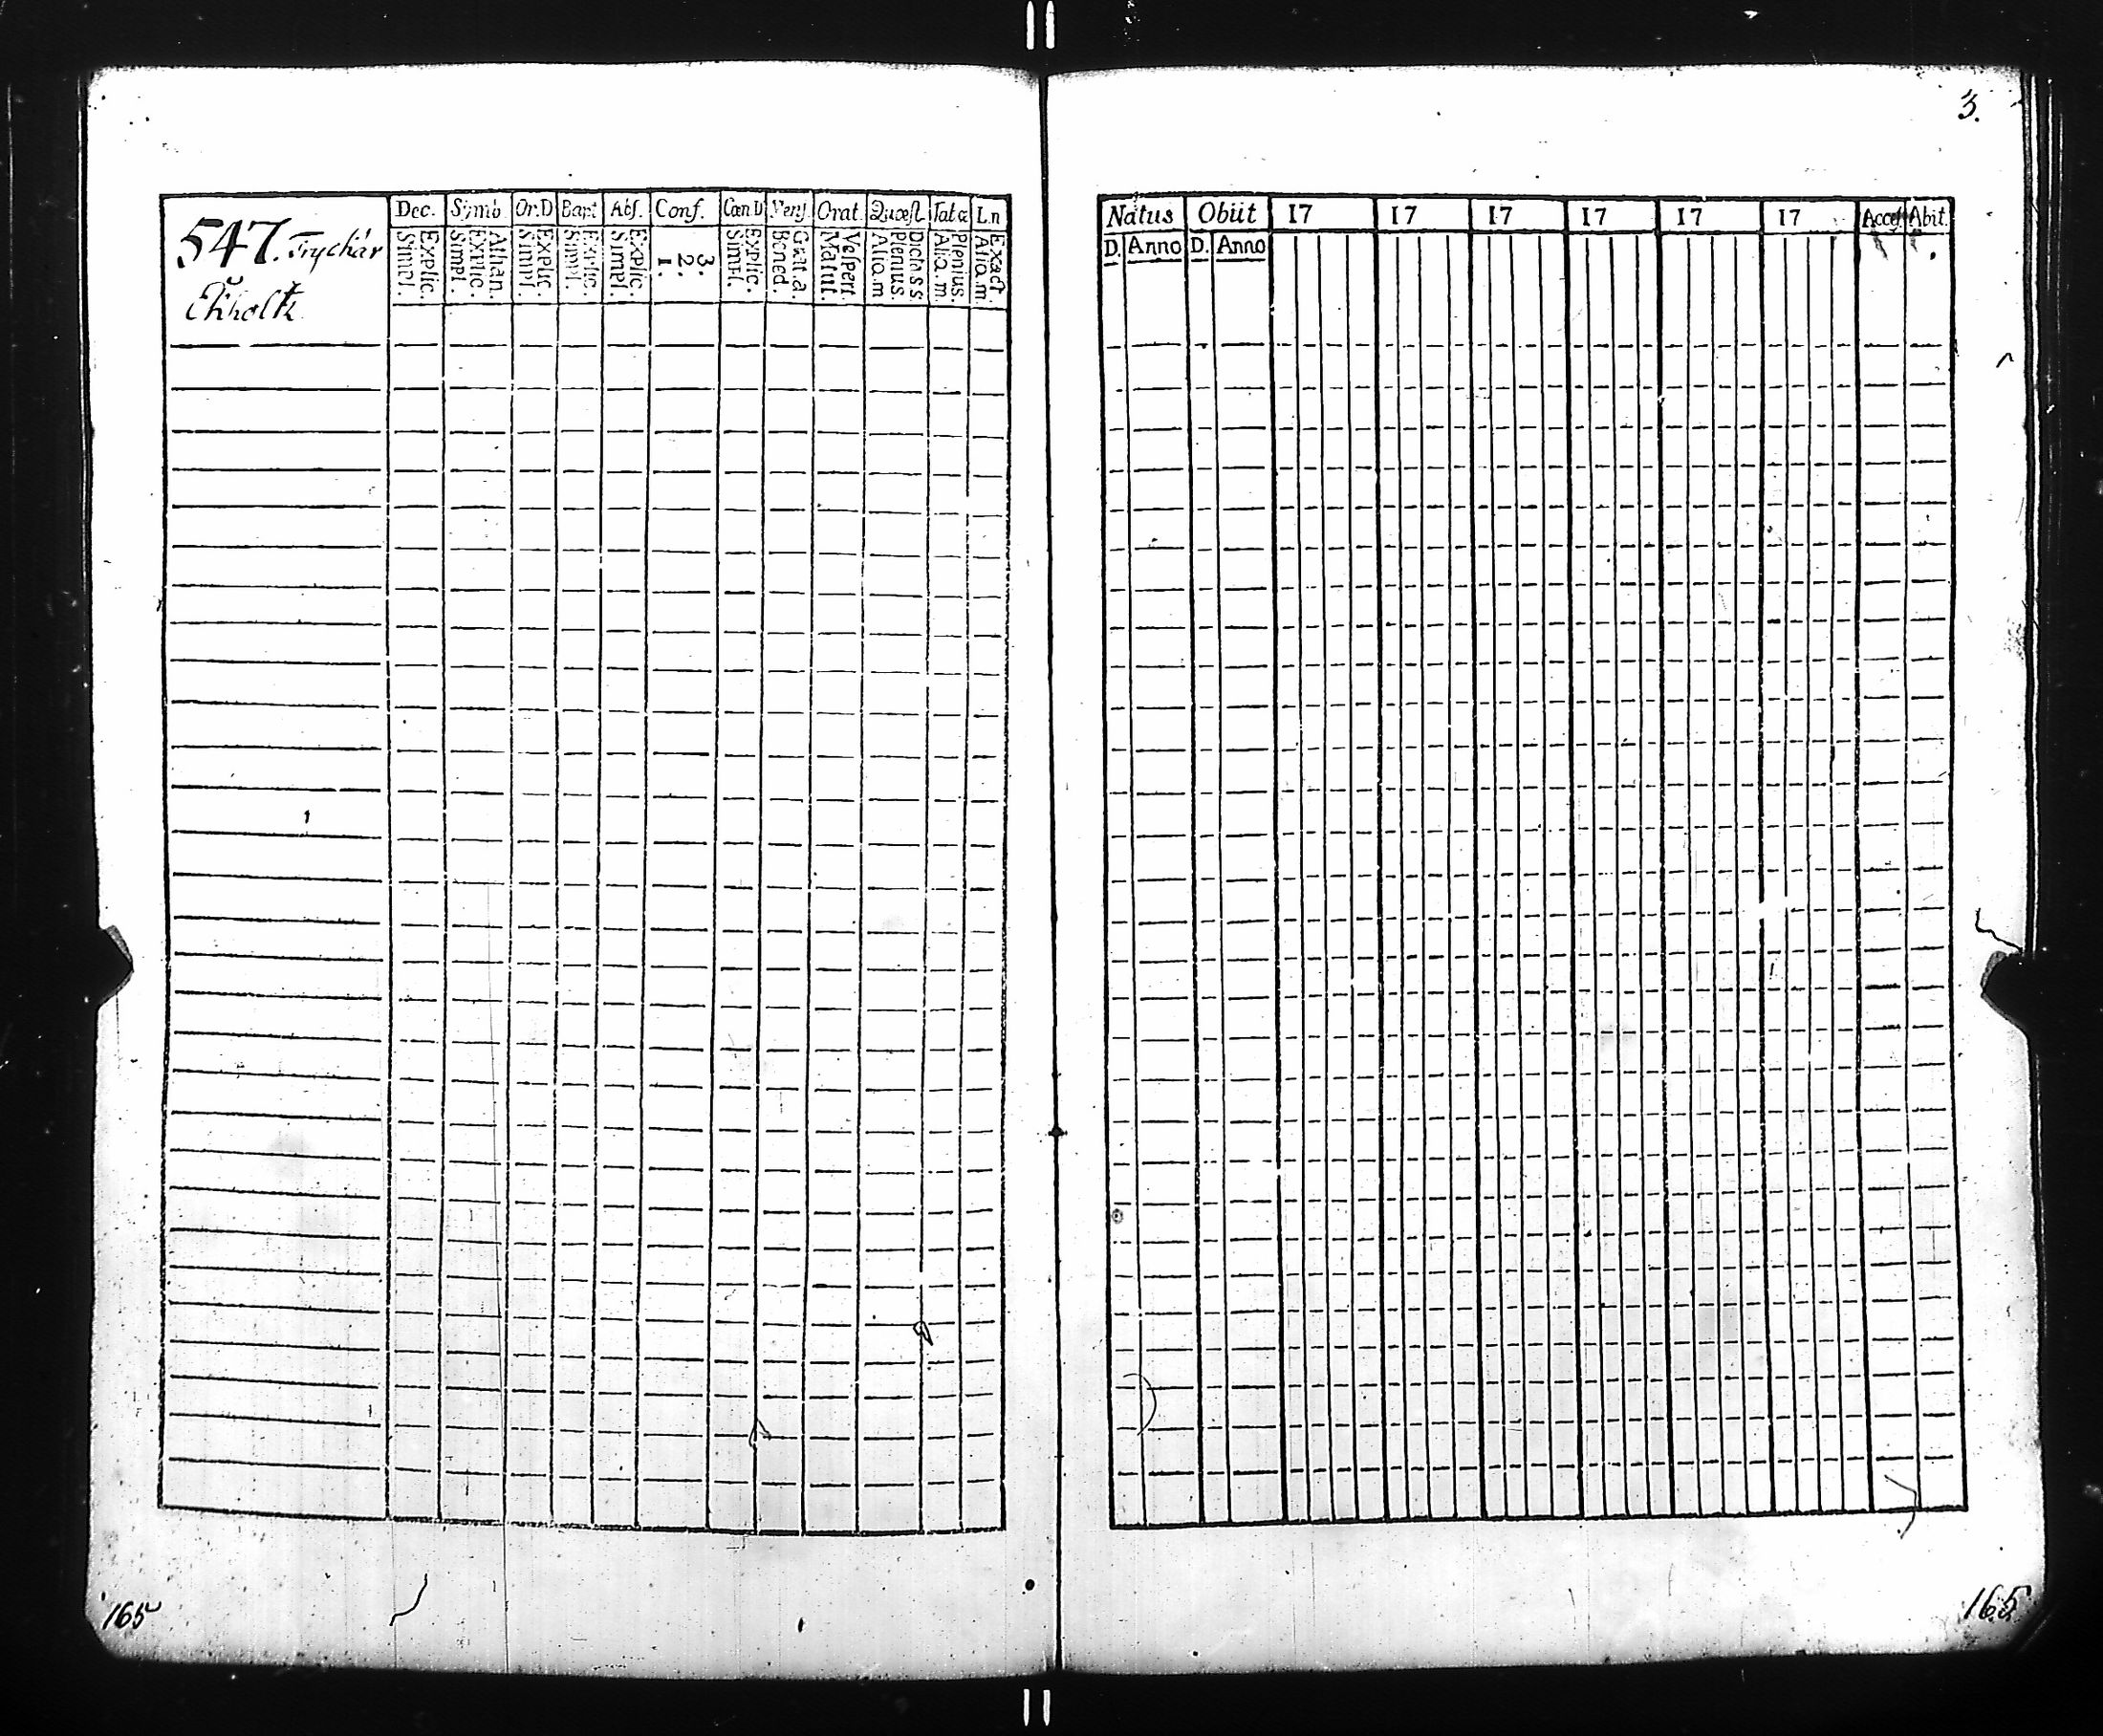 3.
547. Trychär
Ekholtz
Dec. Symb. Or.D Bapt. Abs. Conf. Cœn.D Vers. Orat. Quæst. Tab.œ L.n
Simpl. Explic. Simpl. Explic. Athan. Simpl. Explic. Simpl. Explic. Simpl. Explic. 1. 2. 3. Simpl. Explic. Bened. Grat.a. Matut. Vespert. Aliq.m Plenius. Dictas s. Aliq.m Plenius. Aliq.m Exact.
165
Natus Obiit 17 17 17 17 17 17 Access. Abit.
D. Anno D. Anno
165